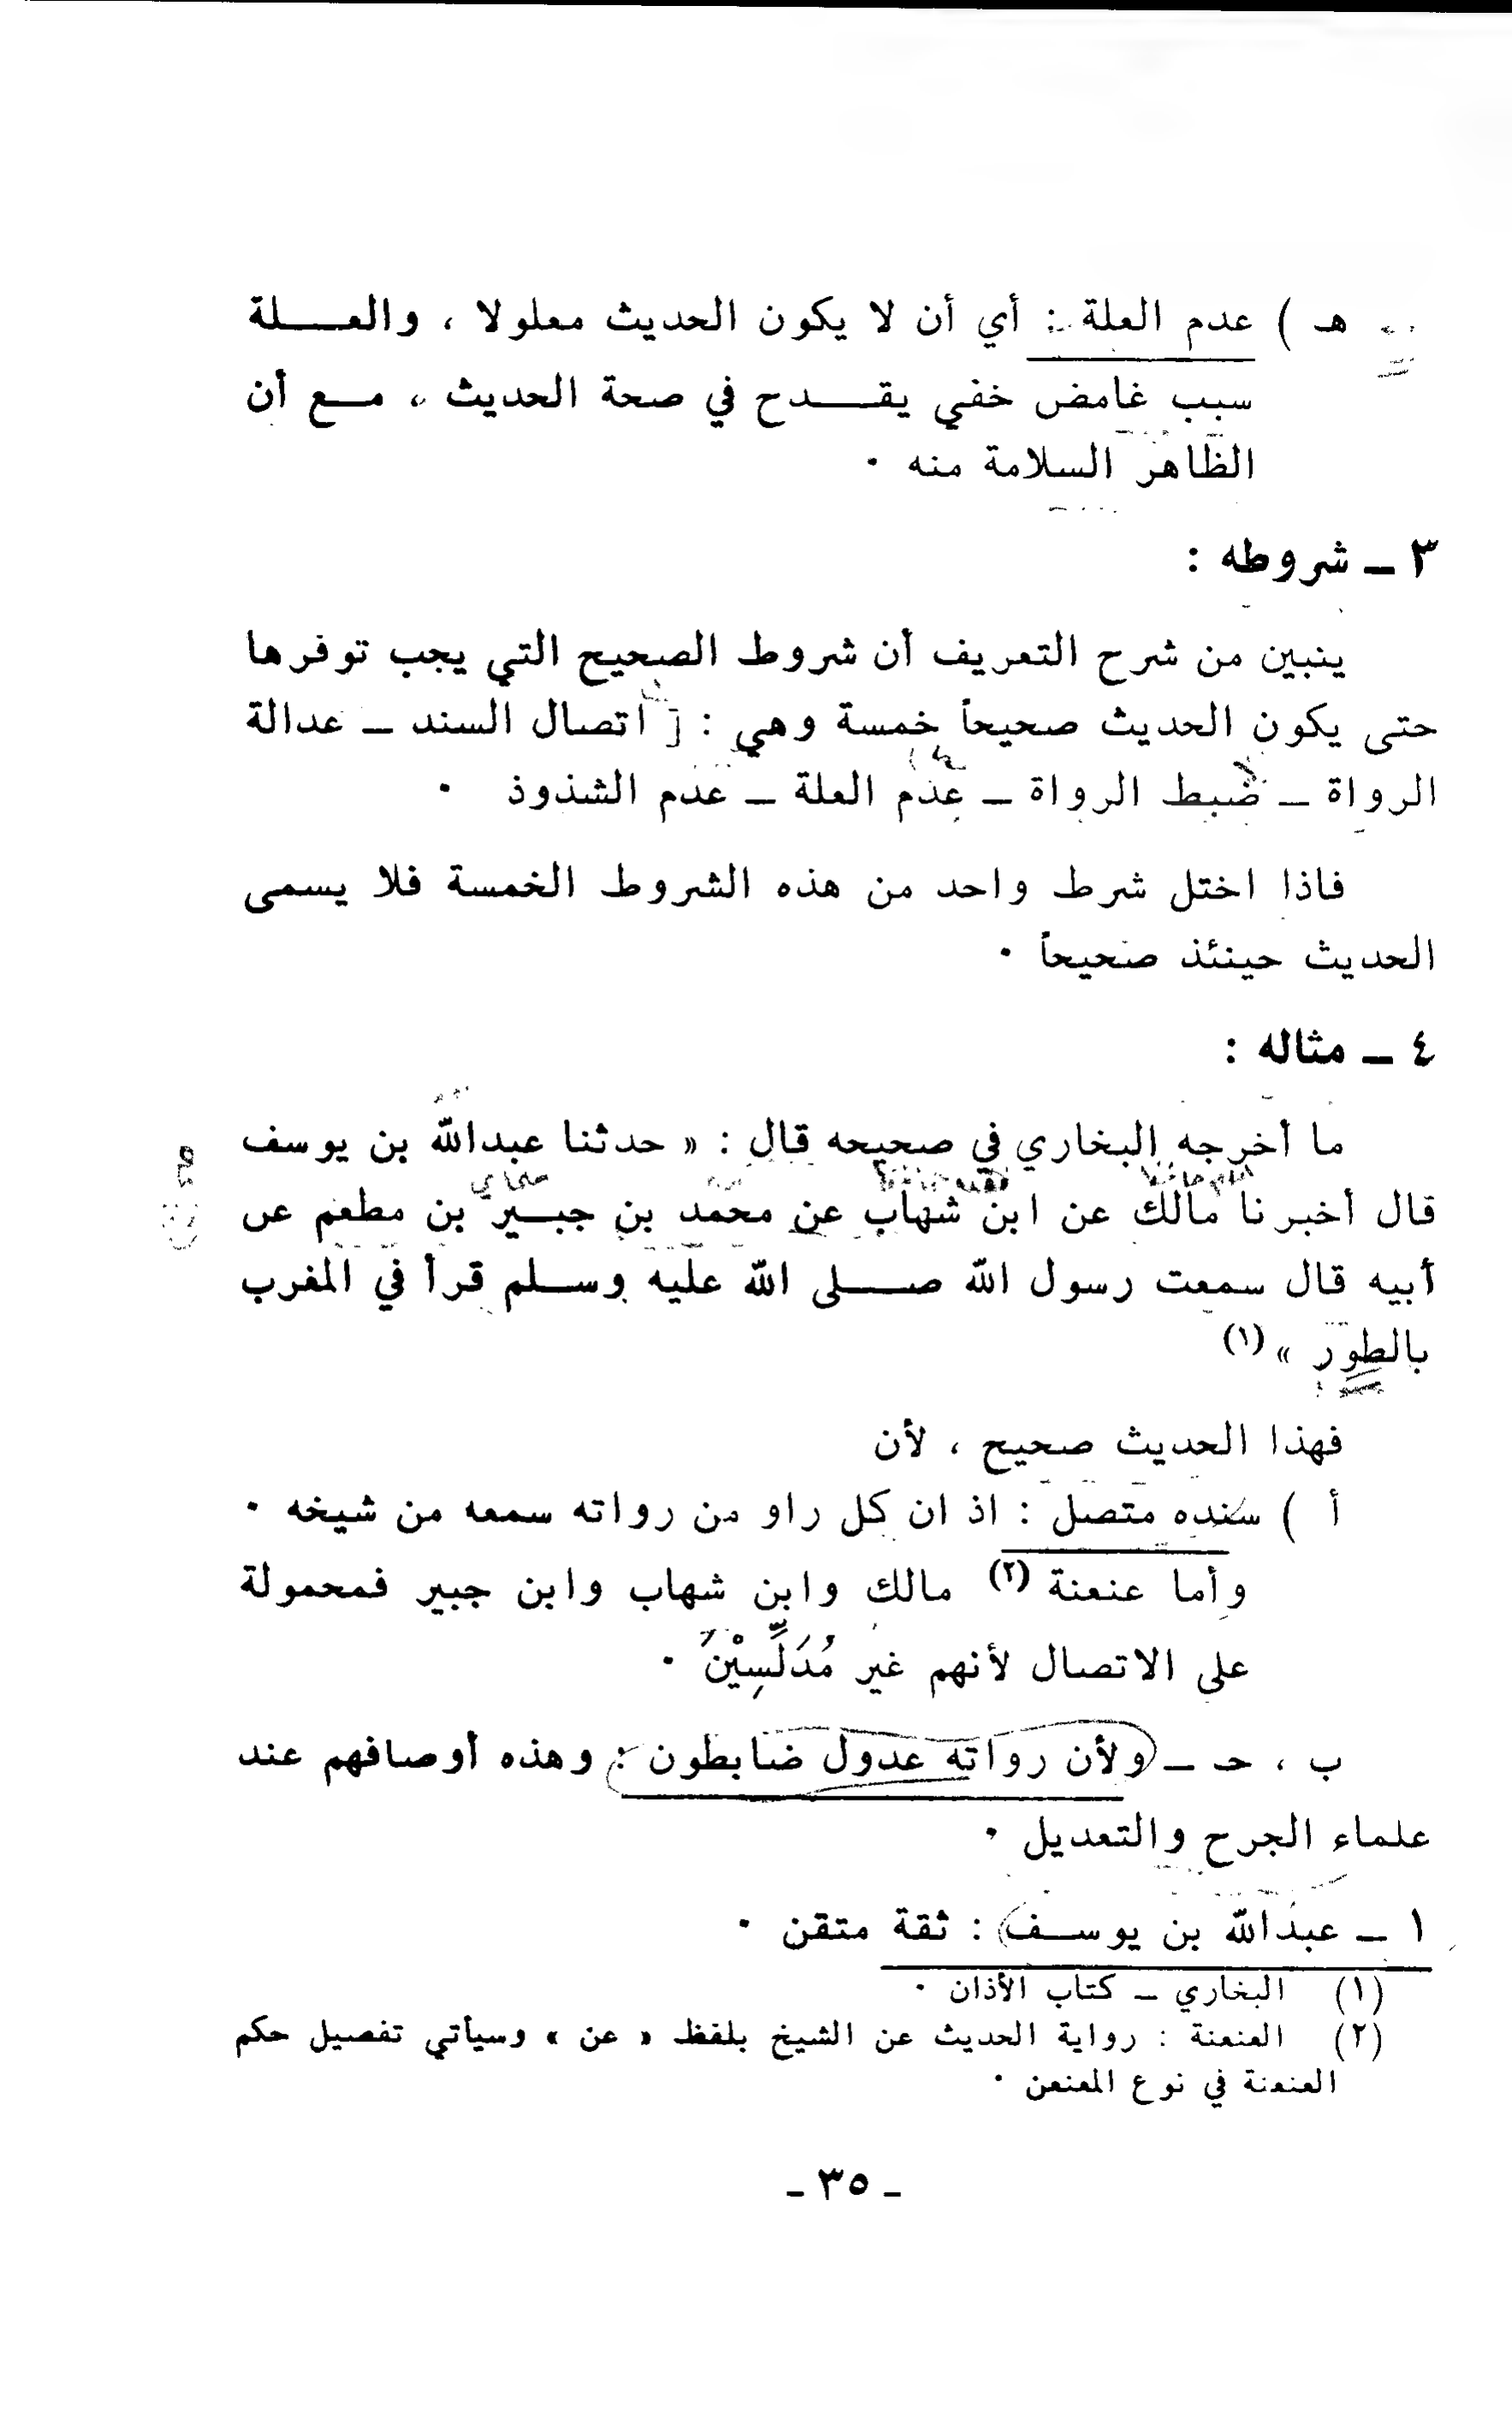 هـ ) عدم العلة : أي أن لا يكون الحديث معلولا ، والعـــلة
سبب غامض خفي يقـــدح في صحة الحديث ، مـع أن
الظاهر السلامة منه .
٣ ـ شروطه :
يتبين من شرح التعريف أن شروط الصحيح التي يجب توفرها
حتى يكون الحديث صحيحاً خمسة وهي : [ اتصال السند ـ عدالة
الرواة ـ ضبط الرواة ـ عدم العلة ـ عدم الشذوذ .
فاذا اختل شرط واحد من هذه الشروط الخمسة فلا يسمى
الحديث حينئذ صحيحاً .
٤ ـ مثاله :
ما أخرجه البخاري في صحيحه قال : « حدثنا عبدالله بن يوسف
قال أخبرنا مالك عن ابن شهاب عن محمد بن جبـير بن مطعم عن
أبيه قال سمعت رسول الله صــلى الله عليه وسـلم قرأ في المغرب
بالطور » (١)
فهذا الحديث صحيح ، لأن
أ ) سنده متصل : اذ ان كل راو من رواته سمعه من شيخه .
وأما عنعنة (٢) مالك وابن شهاب وابن جبير فمحمولة
على الاتصال لأنهم غير مُدَلِّسِيْنَ .
ب ، حـ ـ ولأن رواته عدول ضابطون : وهذه أوصافهم عند
علماء الجرح والتعديل .
١ ـ عبدالله بن يوسـف : ثقة متقن .
(١) البخاري ـ كتاب الأذان .
(٢) العنعنة : رواية الحديث عن الشيخ بلفظ « عن » وسيأتي تفصيل حكم
العنعنة في نوع المعنعن .
ـ ٣٥ ـ